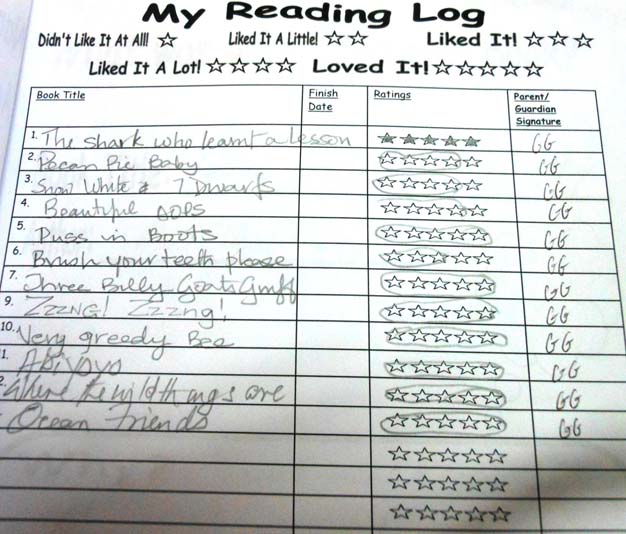 My Reading Log
Didn't Like It At All! ☆ Liked It A Little! ☆☆ Liked It! ☆☆☆
Liked It A Lot! ☆☆☆☆ Loved It! ☆☆☆☆☆
Book Title Finish Date Ratings Parent/Guardian Signature
1. The shark who learnt a lesson ★★★★★ GG
2. Pecan Pie Baby ☆☆☆☆☆ GG
3. Snow White & 7 Dwarfs ☆☆☆☆☆ GG
4. Beautiful OOPS ☆☆☆☆☆ GG
5. Puss in Boots ☆☆☆☆☆ GG
6. Brush your teeth please ☆☆☆☆☆ GG
7. Three Billy Goats Gruff ☆☆☆☆☆ GG
9. ZZZNG! Zzzng! ☆☆☆☆☆ GG
10. Very greedy Bee ☆☆☆☆☆ GG
1. Abiyoyo ☆☆☆☆☆ GG
2. Where the wild things are ☆☆☆☆☆ GG
Ocean Friends ☆☆☆☆☆ GG
☆☆☆☆☆
☆☆☆☆☆
☆☆☆☆☆